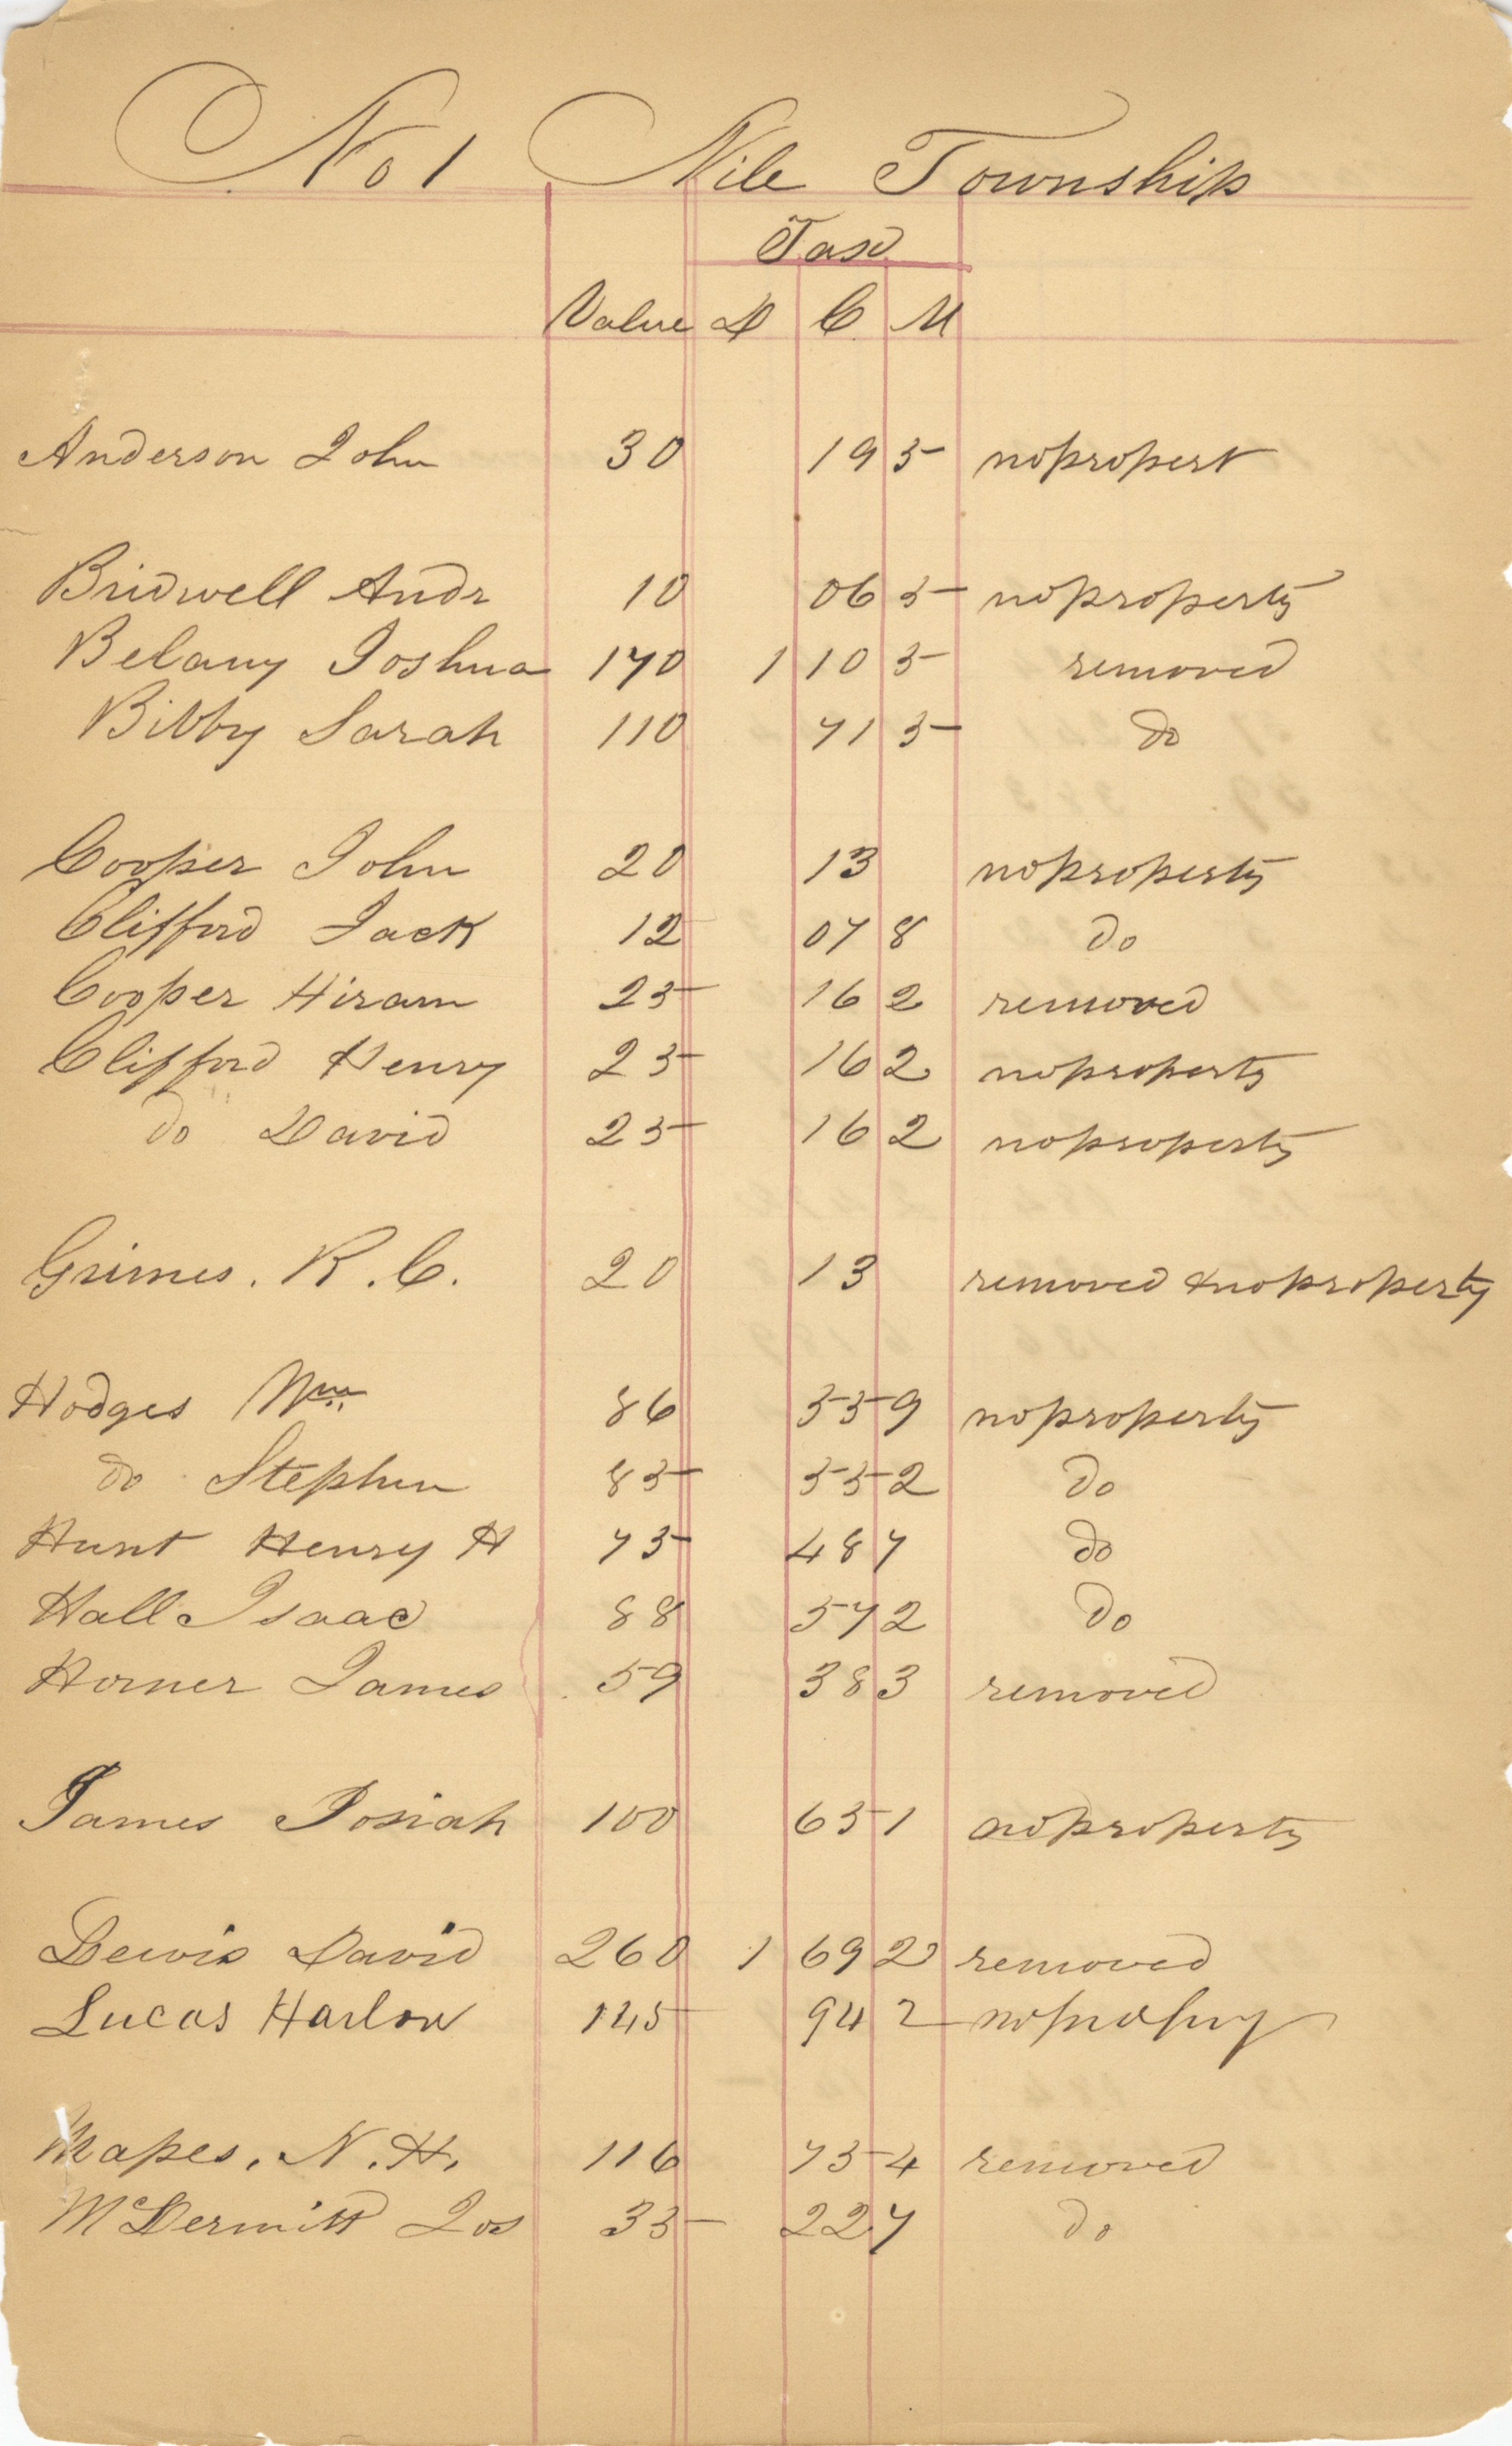 No 1 Nile Township
Tax
Value D C M
Anderson John 30 19 5 nopropert
Bridwell Andr 10 06 5 noproperty
Belany Joshua 170 1 10 5 removed
Bibby Sarah 110 71 5 do
Cooper John 20 13 noproperty
Clifford Jack 12 07 8 do
Cooper Hiram 25 16 2 removed
Clifford Henry 25 16 2 noproperty
do David 25 16 2 noproperty
Grimes. R. C. 20 13 removed & noproperty
Hodges Wm 86 55 9 noproperty
do Stephen 85 55 2 do
Hunt Henry H 75 48 7 do
Hall Isaac 88 57 2 do
Horner James 59 38 3 removed
James Josiah 100 65 1 noproperty
Lewis David 260 1 69 2 removed
Lucas Harlow 145 94 2
Mapes, N. H. 116 75 4 removed
McDermitt Jos 35 22 7 do